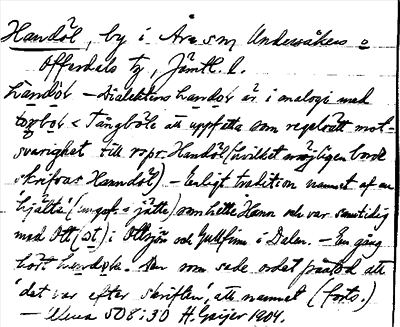 Handöl, by i Åre sn Undersåkers o
Offerdals tg, Jämtl. l.
handöl – Dialektens handöl är i analogi med
< Tångböle att uppfatta som regelrätt mot-
svarighet till rspr. Handöl (hvilket möjligen borde
skrifvas Hanndöl) – Enligt tradition namnet af en
hjälte (ungef = jätte) som hette Hann och var samtidig
med Ott (ɔt) i Ottsjön och Gullfinn i Dalen. – En gång
hört . Den som sade ordet påstod att
'det var efter skriften', att namnet (forts.)
– 508:30 H. Geijer 1904.